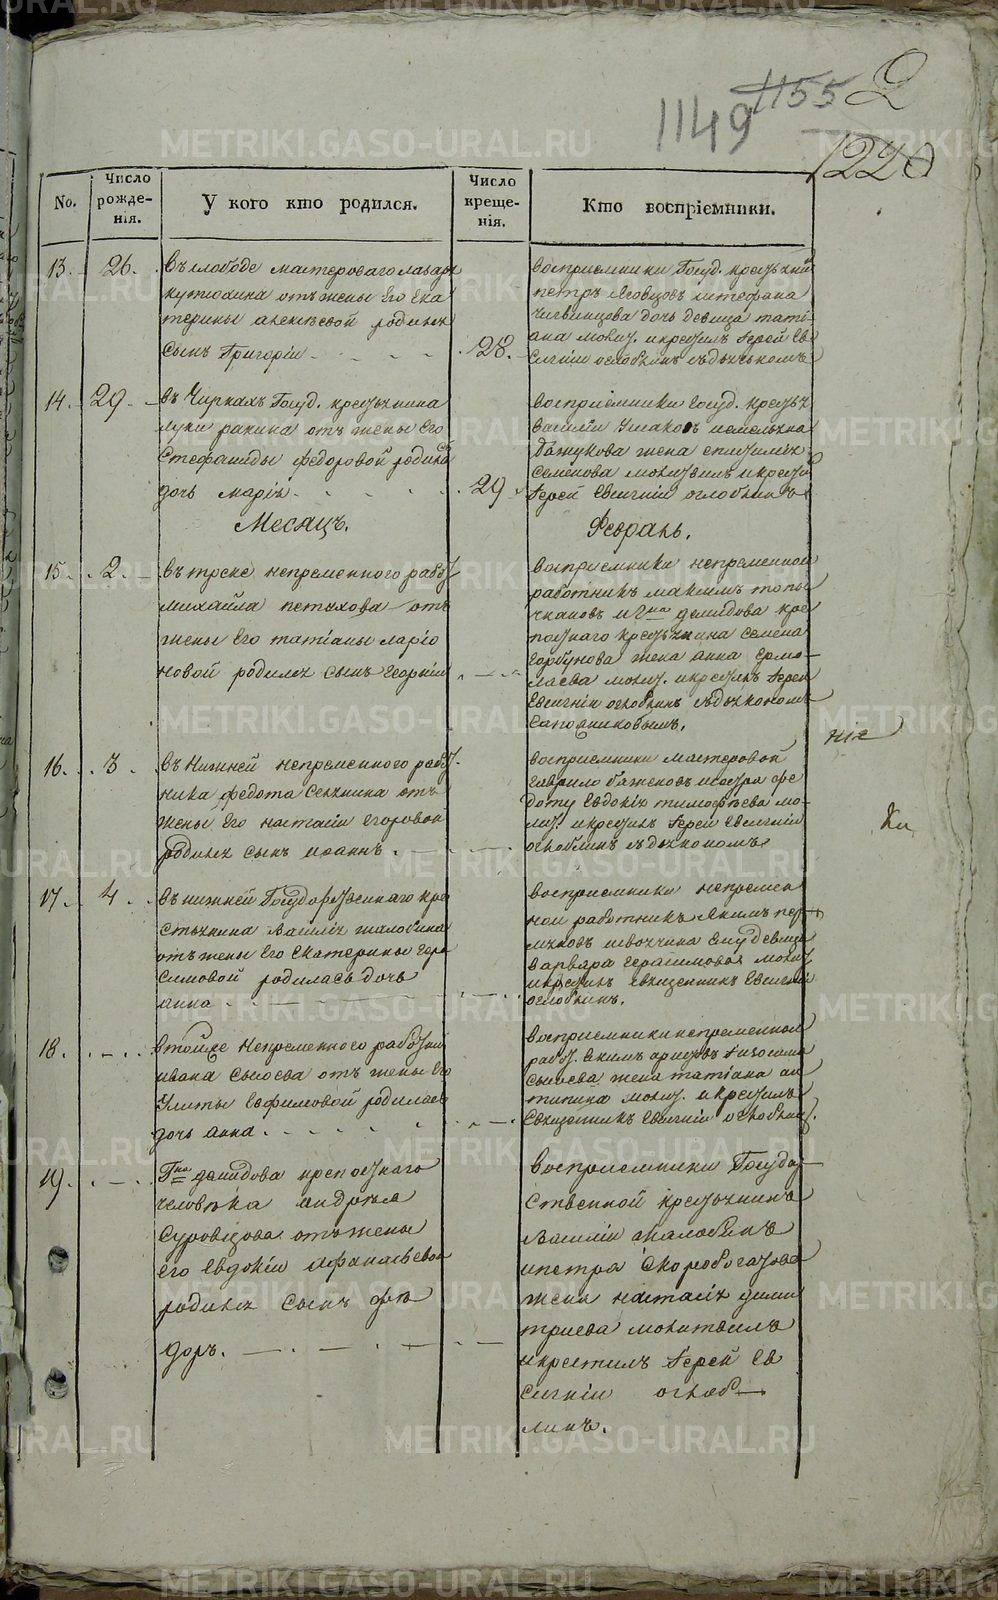 1149 1155 2
1220
No.
Число
рожде-
нія.
У кого кто родился.
Число
креще-
нія.
Кто воспріемники.
13. 26. въ слободе мастероваго лазаря
кутюхина отъ жены Его Ека
терины алексѣевой родился
сынъ Григоріи 28.
воспріемники Госуд. крестьянин
петръ
дочь девица тати-
ана молит. и крестилъ Іерей Ев
сигніи оглоблинъ съ дьячькомъ
14. 29. въ Чиркахъ Госуд. крестьянина
луки ракина отъ жены Его
Стефаниды федоровой родилась
дочь марія 29
воспріемники Госуд. крестья
василіи Ушаковъ
Бажукова жена
семенова молитвилъ и крести
Іерей Евсигніи оглоблинъ
Месяцъ. Февраль.
15. 2. въ непременного работ
михайла петухова отъ
жены Его татіаны ларіо
новой родился сынъ Георгіи
воспріемники непременной
работникъ максимъ топы
чкановъ и Гна демидова кре
постнаго крестьянина семена
Горбунова жена анна Ермо-
лаева молит. и крестилъ Іереи
Евсигніи оглоблинъ съ дьячкомъ
Сапожниковымъ.
ніе
16. 3. въ Нижней непременного рабо
ника федота Сенкина отъ
жены Его настасіи егоровои
родился сынъ иоаннъ.
воспріемники мастеровой
Гаврило баженовъ
Евдокія тимофѣева мо-
лит. и крестилъ Іереи Евсигніи
оглоблинъ съ дьячкомъ
17. 4. въ нижней Государственнаго кре
стьянина Василія жалобина
отъ жены Его Екатерины Гера
симовой родилась дочь
анна
воспріемники непремен
нои работникъ Якимъ пер-
девица
варвара Герасимова молит
и крестилъ священникъ Евсигніи
оглоблинъ.
18. непременного работни
ивана сысоева отъ жены Его
Улиты Евфимовой родилась
дочь анна.
воспріемники непременнои
работ. Екимъ
Сысоева жена татіана ан
типина молит. и крестилъ
Священникъ Евсигніи оглоблин.
19. Гна демидова крепостнаго
человѣка андрѣя
Суровцова отъ жены
его Евдокіи афанасьевои
родился сынъ фе
доръ.
воспріемники Государ-
ственной крестьянинъ
василіи жалобинъ
и петра Скоробогатова
жена настасія дими
триева молитвилъ
и крестилъ Іерей Ев
сигніи оглоб-
линъ.